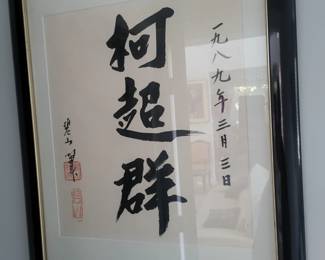 一九八九年三月三日
柯超群